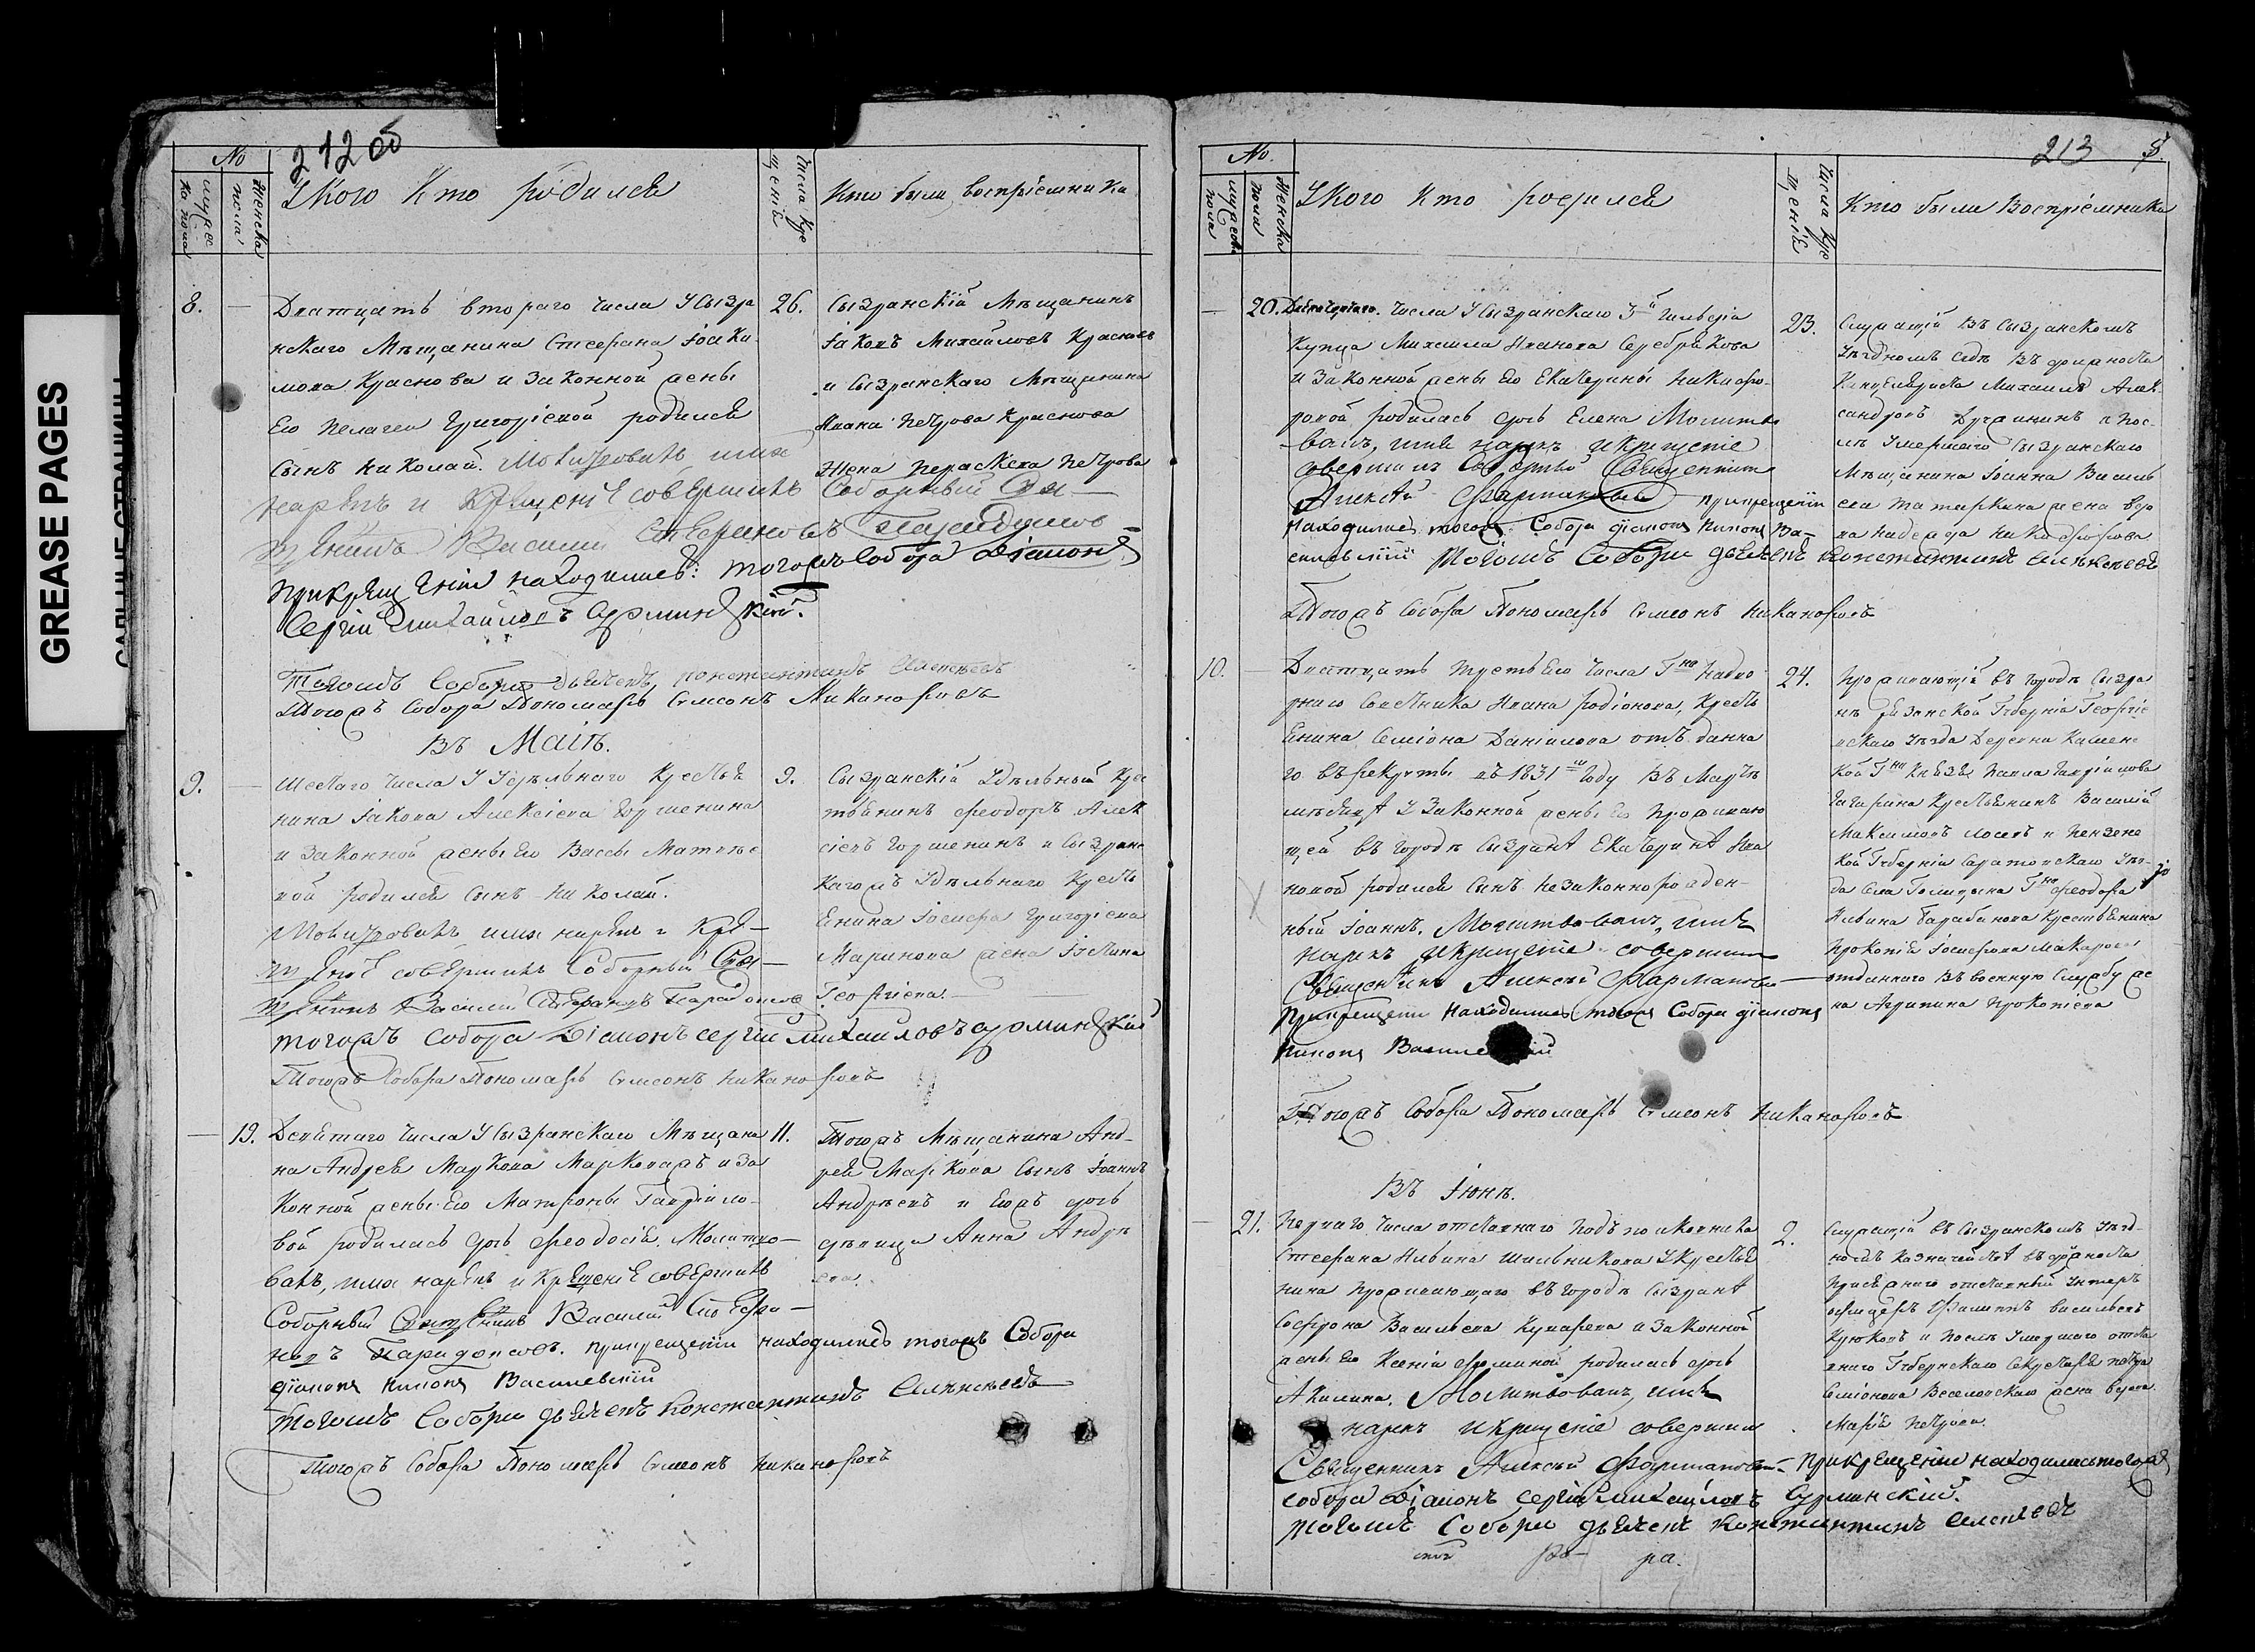 GREASE PAGES
212 об
№
мужес
ка пола
женска
пола
У кого кто родился
числа кре
щенiя
Кто были воспрiемники
8. —
Дватцать втораго числа У Сызра
нскаго Мѣщанина Стефана Iоаки
мова Краснова и Законной жены
Его Пелагеи Григорiевой родился
Сынъ Николай. Молитвовалъ имя
нарекъ и крещенiе совершилъ Соборный Свя—
щенникъ Василий
При крещенiи находились: тогожъ Собора Дiаконъ
Сергiй Михайловъ
Тогожъ Собора дьячекъ Константинъ Алексеевъ
Тогожъ Собора Пономарь Симеонъ Никаноровъ
26.
Сызранскiй Мѣщанинъ
Iаковъ Михайловъ Красновъ
и Сызранскаго Мѣщанина
Ивана Петрова Краснова
Жена Параскева Петрова
Въ Маiѣ.
9. —
Шестаго числа У Удѣльнаго Крестья
нина Iакова Алексiева Горшенина
и Законной жены Его Вассы Матвѣе
вой родился Сынъ Николай.
Молитвовалъ имя нарекъ и Кре—
щенiе совершилъ Соборный Свя—
щенникъ Василий
тогожъ Собора Дiаконъ Сергiй Михайловъ
Тогожъ Собора Пономарь Симеонъ Никаноровъ
9.
Сызранскiй Удѣльный Крес
тьянинъ Феодоръ Алек
сiевъ Горшенинъ и Сызранс
кагожъ Удѣльнаго Кресть
янина Iосифа Григорiева
Маринова жена Iустина
Георгiева.
— 19.
Девятаго числа У Сызранскаго Мѣщани
на Андрея Маркова Маркова жъ и За
конной жены Его Матроны Гаврило—
вой родилась дочь Феодосiя. Молитво—
валъ, имя нарекъ и Крещенiе совершилъ
Соборный Священникъ Василий Стефа—
новъ при крещенiи находились тогожъ Собора
дiаконъ Никонъ Василевскiй
Тогожъ Собора дьячекъ Константинъ Алексеевъ
Тогожъ Собора Пономарь Симеонъ Никаноровъ
11.
Тогожъ Мѣщанина Анд—
рея Маркова Сынъ Iоаннъ
Андреевъ и Егожъ дочь
дѣвица Анна Андре
ева.
213
№
мужеска
пола
женска
пола
У кого кто родился
числа кре
щенiя
Кто были Воспрiемники
— 20.
числа У Сызранскаго 3й Гильдiи
Купца Михаила Иванова Серебрякова
и Законной жены Его Екатерины Никифо—
ровой родилась дочь Елена Молитво
—валъ, имя нарекъ и крещенiе
совершилъ Соборный Священникъ
Алексѣй при крещенiи
Находились тогожъ Собора дiаконъ Никонъ Ва—
силевскiй Тогожъ Собора дьячекъ Константинъ Алексеевъ
Тогожъ Собора Пономарь Симеонъ Никаноровъ
23.
Служащiй Въ Сызранскомъ
Уѣздномъ судѣ Въ должности
Канцеляриста Михаилъ Алек
сандровъ и пос—
лѣ Умершаго Сызранскаго
Мѣщанина Iоанна Василь
ева жена вдо
ва Надежда Никифорова
10. —
Дватцать третьяго числа Гна Надво
рнаго Советника Ивана Родiонова, Кресть
янина Семiона Данiилова отъ данна
го въ рекруты въ 1831м Году Въ Мартѣ
мѣсяцѣ У Законной жены Его Проживаю
щей въ Городѣ Сызранѣ Екатеринѣ Ива
новой родился Сынъ незаконнорожден—
ный Iоаннъ. Молитвовалъ, имя
нарекъ и крещенiе совершилъ
Священникъ Алексѣй
При крещенiи Находились тогожъ Собора дiаконъ
Никонъ Василевскiй
Тогожъ Собора Пономарь Симеонъ Никаноровъ
24.
Проживающiй въ городѣ Сызра
нѣ Губернiи Георгiе
вскаго Уѣзда Деревни Камен
кой Гна Князя Павла Гаврiилова
Гагарина Крестьянинъ Василiй
Максимовъ Лосевъ и Пензенс
кой Губернiи Саратовскаго Уѣз—
да села Голицына Гна Феодора
Ильина Крестьянина
Прокопiя Iосифова Макарова
отданнаго въ военную Службу же
на Агрипина Прокопiева
Въ Iюнѣ.
— 21.
Перваго числа отставнаго подъ полковника
Стефана Ильина Шильникова У Крестья
нина Проживающаго въ Городѣ Сызранѣ
Софрона Васильева и Законной
жены Его Ксенiи Фоминой родилась дочь
Акилина. Молитвовалъ, имя
нарекъ и крещенiе совершилъ
Священникъ Алексѣй При крещенiи находились тогожъ
собора Дiаконъ Сергiй Михайловъ
тогожъ Собора дьячекъ Константинъ Алексеевъ
2.
Служащiй въ Сызранскомъ Уѣзд—
номъ Казначействѣ въ должности
Присяжнаго отставный Унтеръ
офицеръ Филиппъ Васильевъ
Крюковъ и послѣ Умершаго отста
внаго Губернскаго Секретаря Петра
Семiонова Веселовскаго жена вдова
Марiя Петрова.